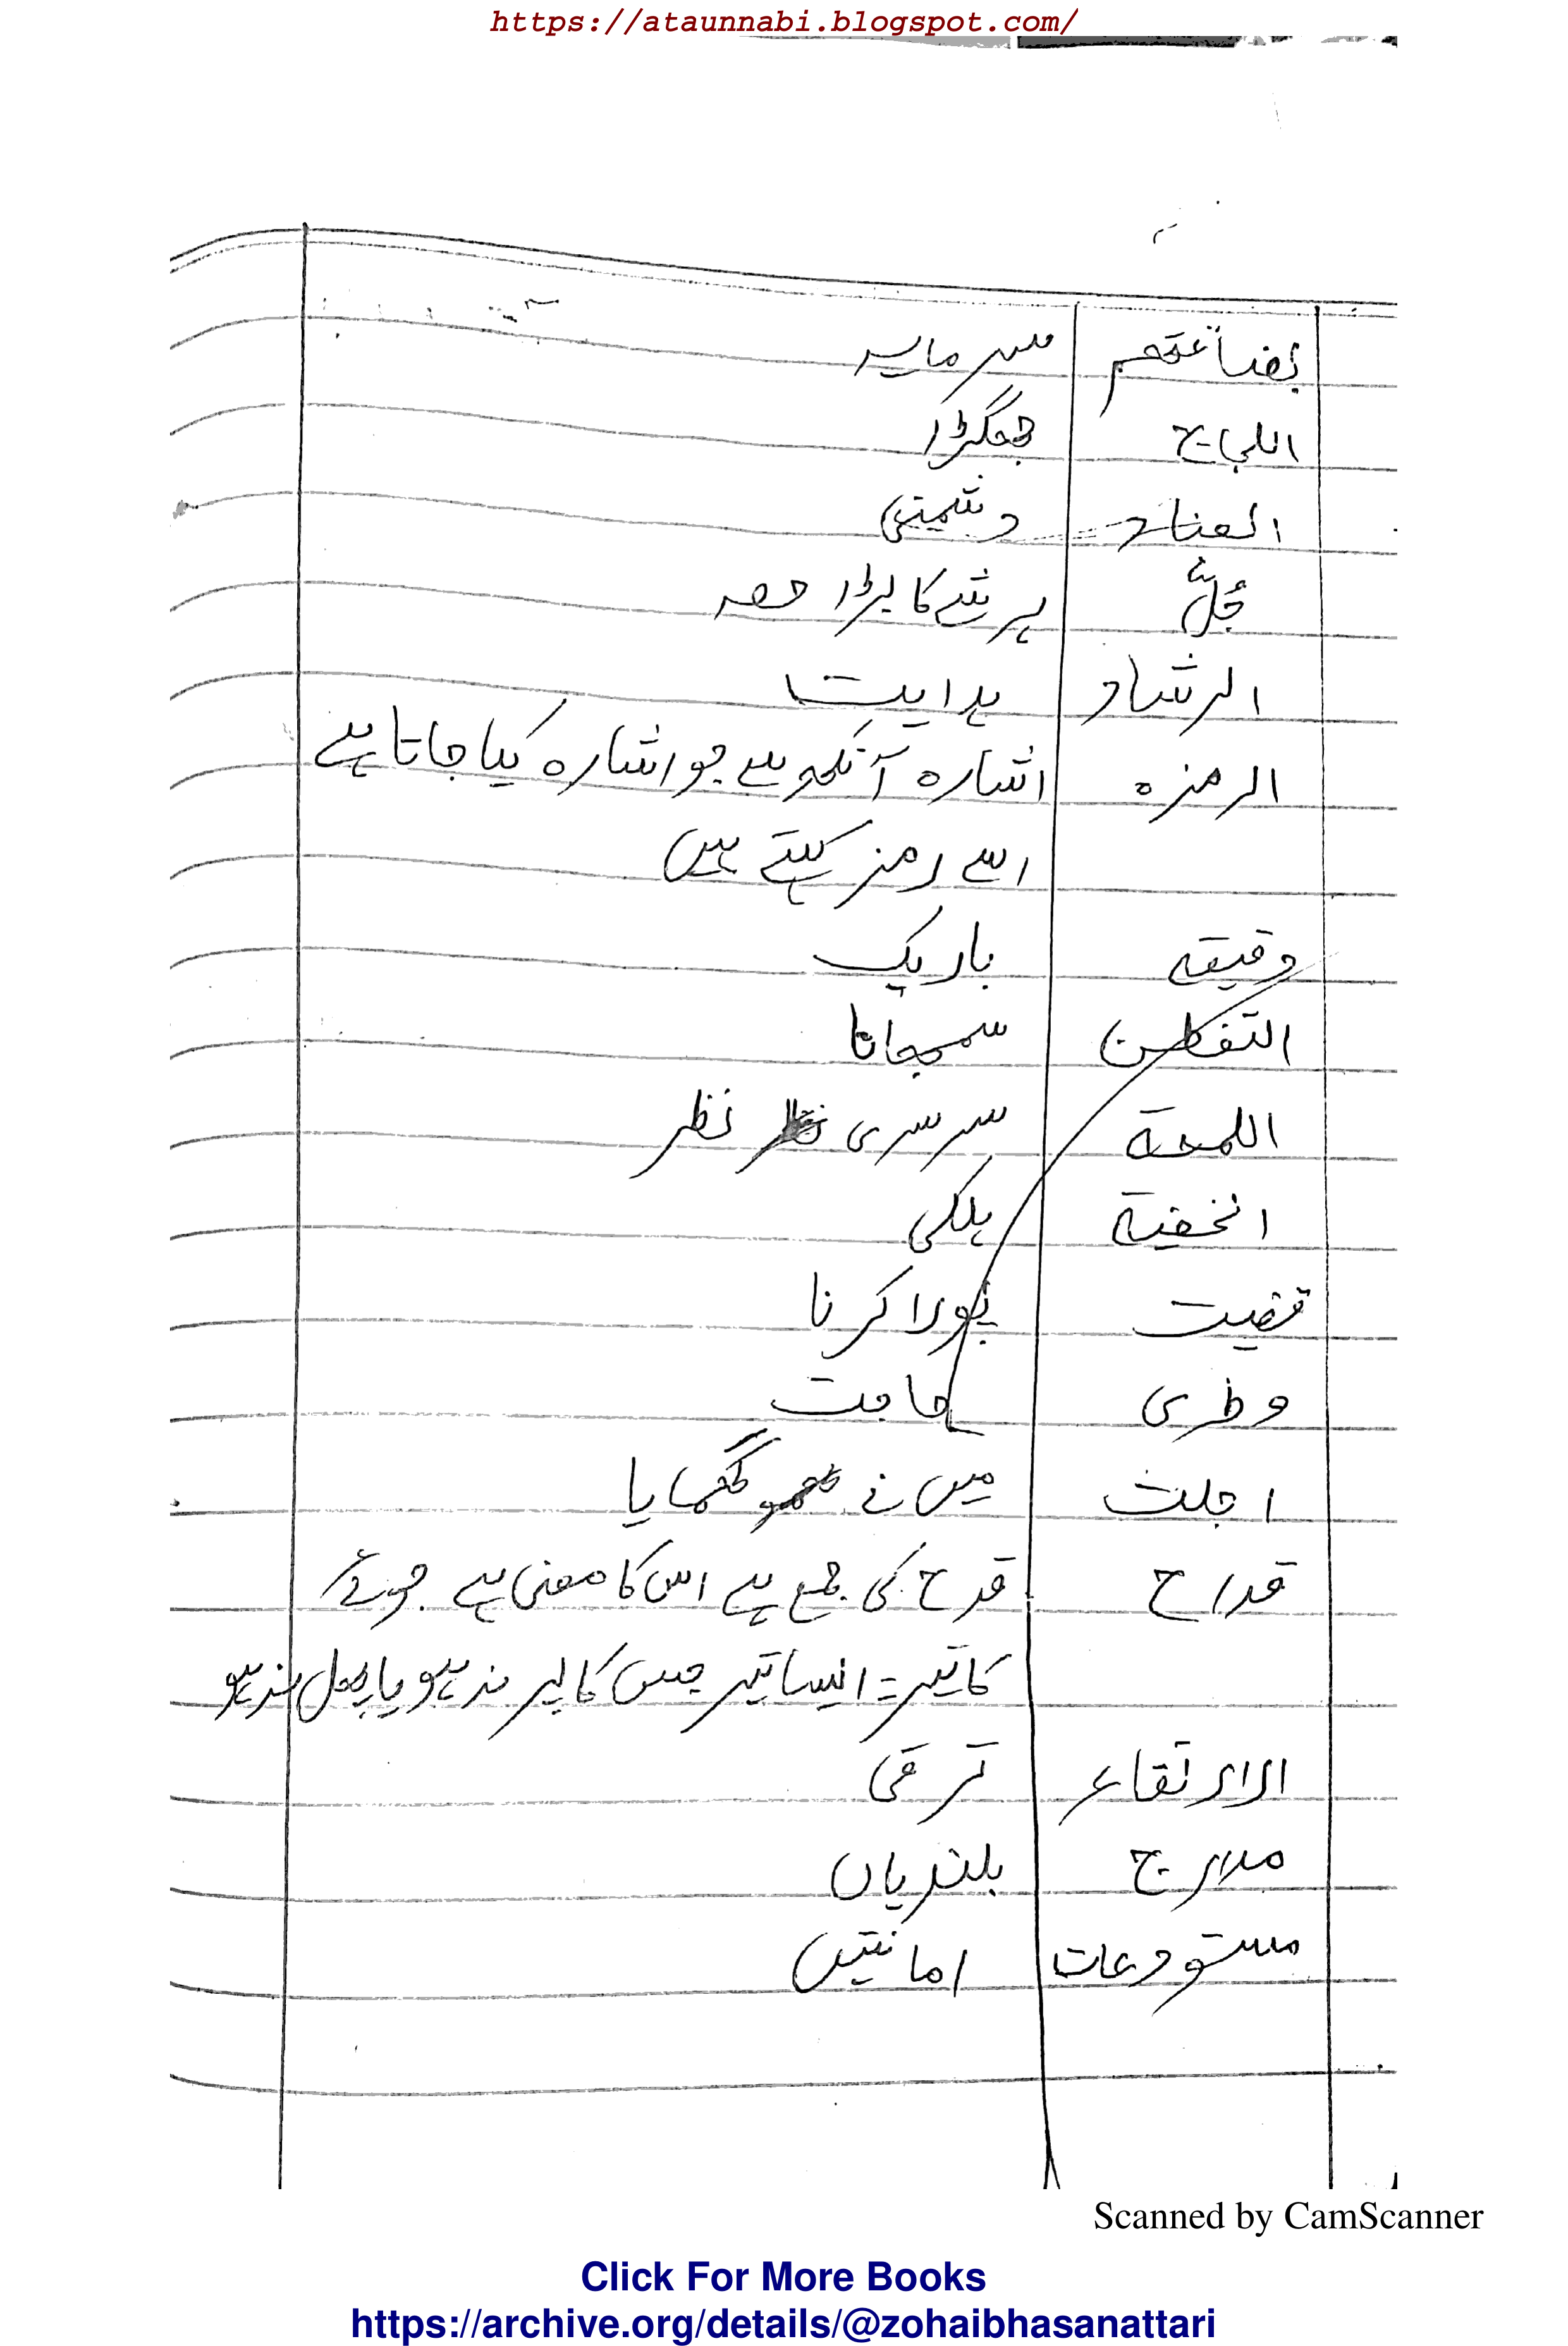 https://ataunnabi.blogspot.com/
بضاعتھم سرمایہ
اللجاج جھگڑا
العناد دشمنی
جُلَّ ہر شے کا بڑا حصہ
الرشاد ہدایت
الرمزہ اشارہ آنکھ سے جو اشارہ کیا جاتا ہے
اسے رمز کہتے ہیں
دقیقہ باریک
التفطن سمجھانا
اللمحة سرسری نظر
الخفیة ہلکی
قضیت پورا کرنا
وطری حاجت
اجلت میں نے گھمایا
قداح قدح کی جمع ہے اس کا معنی ہے جوئے
کا تیر = ایسا تیر جس کا پر نہ ہو یا پھل نہ ہو
الارتقاء ترقی
مدارج بلندیاں
مستودعات امانتیں
Scanned by CamScanner
Click For More Books
https://archive.org/details/@zohaibhasanattari